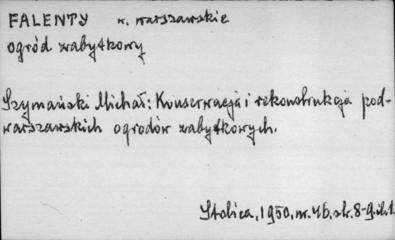 FALENTY w. warszawskie
ogród zabytkowy
Szymański Michał: Konserwacja i rekonstrukcja pod-
warszawskich ogrodów zabytkowych.
Stolica, 1950, nr. 46. st. 8-9. il. 1.